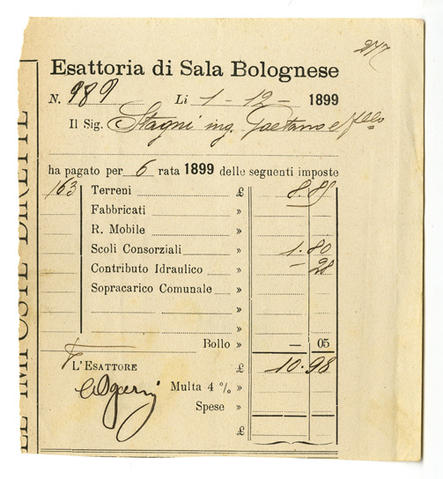 277
Esattoria di Sala Bolognese
N. 989 Li 1-12- 1899
Il Sig. Stagni ing. Gaetano e f.llo
ha pagato per 6 rata 1899 delle seguenti imposte
163 Terreni £ 8.85
Fabbricati »
R. Mobile »
Scoli Consorziali » 1.80
Contributo Idraulico » — 28
Sopracarico Comunale »
Bollo » — 05
L'ESATTORE £ 10.98
Multa 4 % »
Spese »
£
LE IMPOSTE DIRETTE